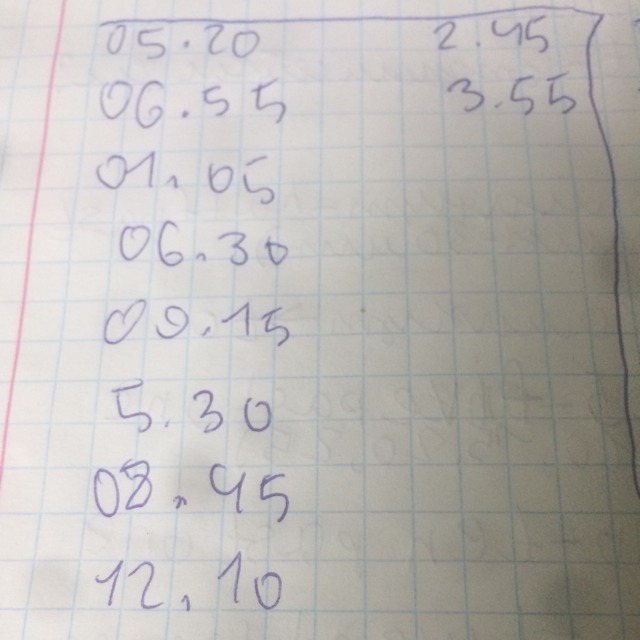 05.20 2.45
06.55 3.55
01.05
06.30
09.15
5.30
08.45
12.10